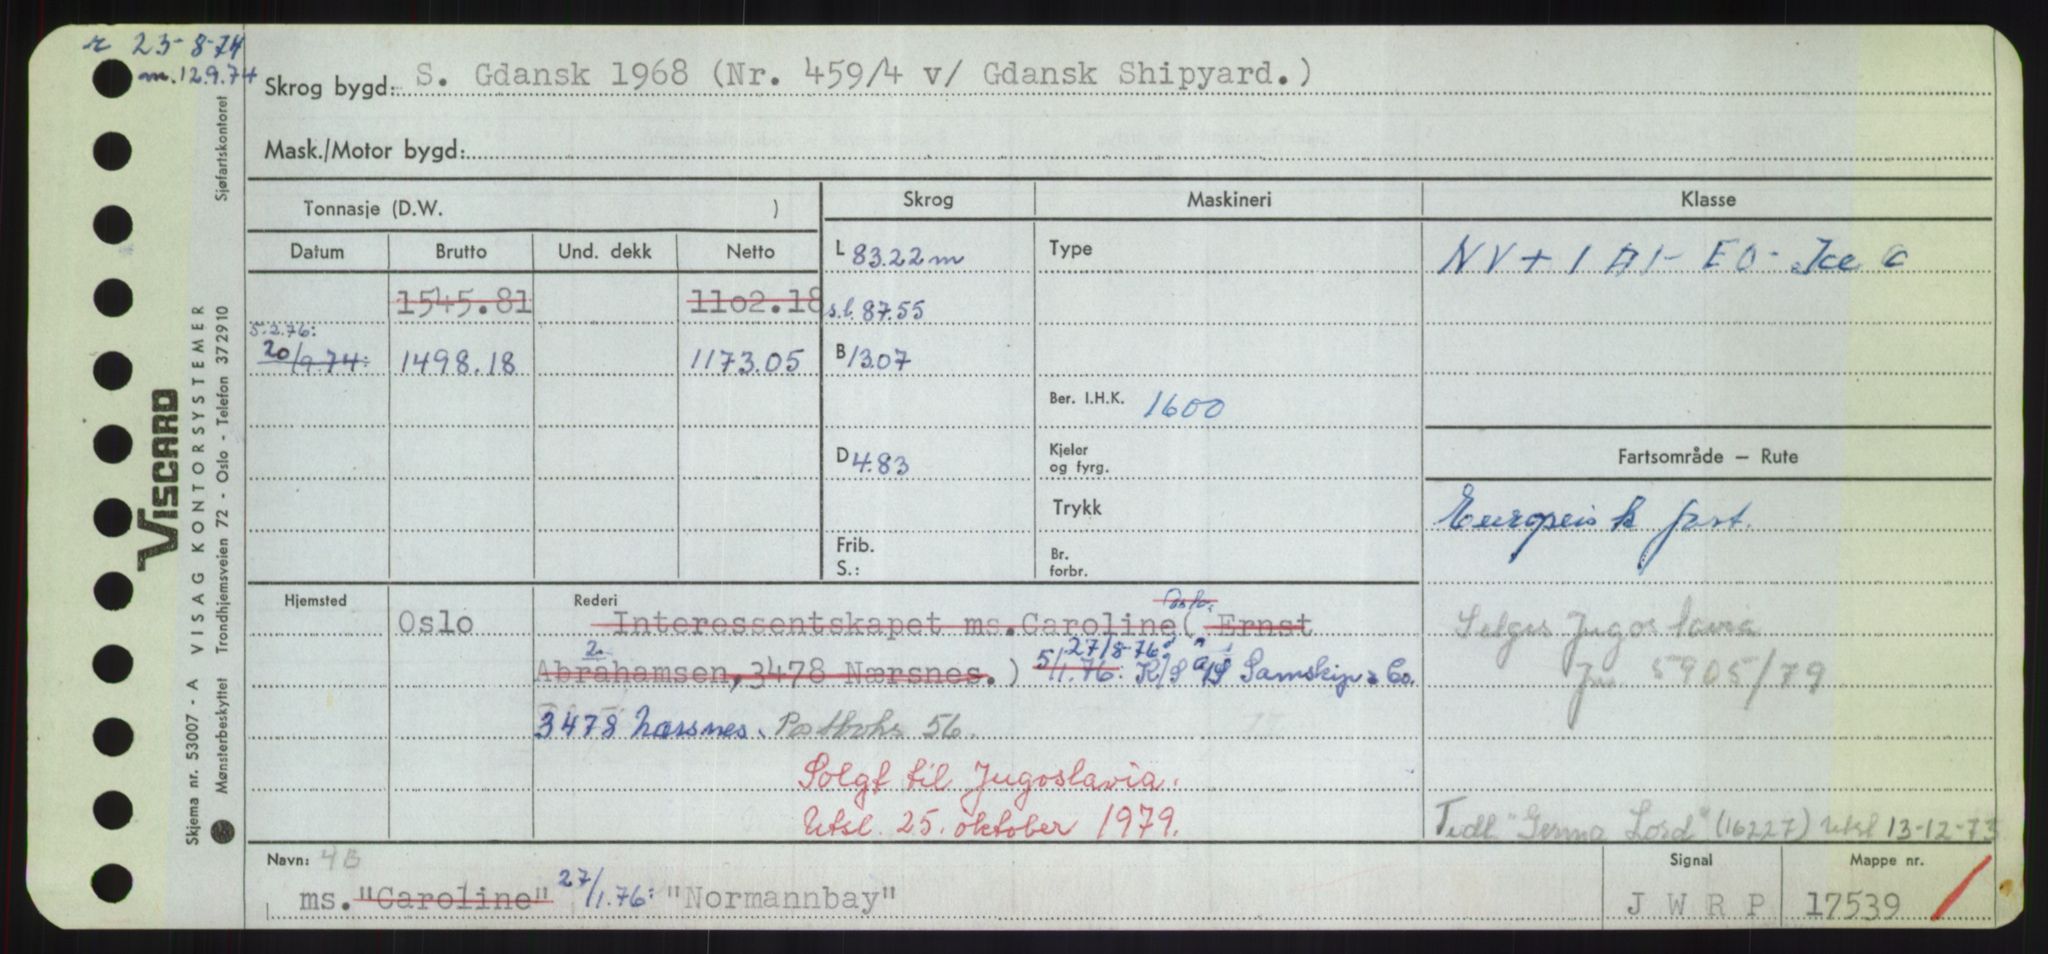 r 23-8-74
m. 12.9.74
Skrog bygd: S. Gdansk 1968 (Nr. 459/4 v/ Gdansk Shipyard.)
Mask./Motor bygd:
Tonnasje (D.W. )
Skrog
Maskineri
Klasse
Datum
Brutto
Und. dekk
Netto
L 83.22 m
Type
NV + 1 A1 - E0 - Ice C
1545.81
11o2.18
s.l. 87.55
5.2.76:
20/9.74:
1498.18
1173.05
B 13.07
Ber. I.H.K. 1600
D 4.83
Kjeler
og fyrg.
Fartsområde — Rute
Trykk
Europeisk fart.
Frib.
S.:
Br.
forbr.
Hjemsted
Oslo
Rederi
Oslo.
Interessentskapet ms.Caroline( Ernst
Selges Jugoslavia
2. 27/8-76
Abrahamsen, 3478 Nærsnes.) 5/1.76: K/S A/S Samskip & Co.
Jnr 5905/79
3478 Nærsnes. Postboks 56.
Solgt til Jugoslavia.
Utsl. 25. oktober 1979.
Tidl. "Germa Lord" (16227) utsl 13-12-73
Navn: 4B
Signal
Mappe nr.
ms. "Caroline" 27/1.76: "Normannbay"
J W R P
17539
VISCARD
Skjema nr. 53007 - A VISAG KONTORSYSTEMER
Mønsterbeskyttet Trondhjemsveien 72 - Oslo - Telefon 372910 Sjøfartskontoret